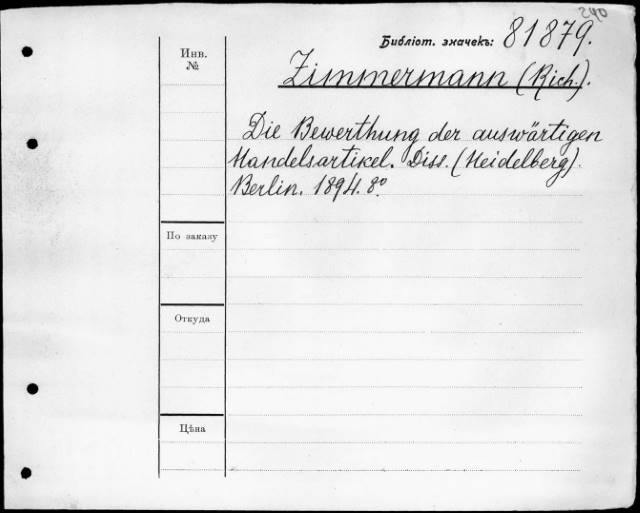 240
Библіот. значекъ: 81879.
Инв.
№
Zimmermann (Rich.).
Die Bewerthung der auswärtigen
Handelsartikel. Diss. (Heidelberg).
Berlin. 1894. 8º
По заказу
Откуда
Цѣна